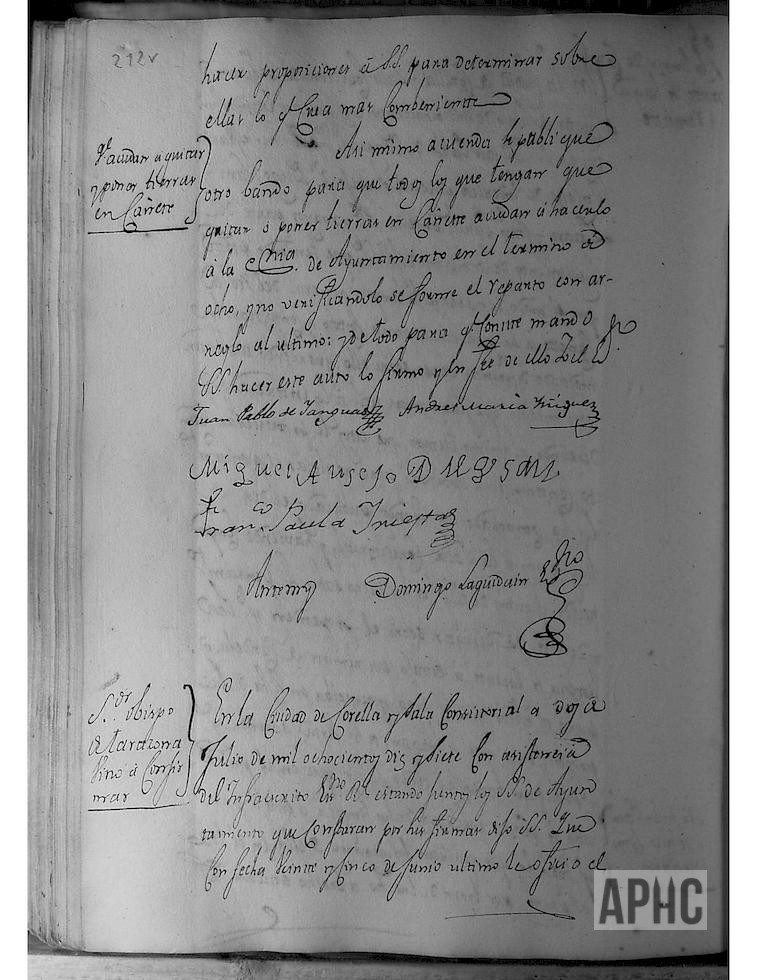 212v
hacer proposiciones á S.S. para determinar sobre
ellas lo q.e Crea mas Combeniente
q.e acudan a quitar
y poner tierras
en Cañete
Asi mismo acuerda se publique
otro bando para que todos los que tengan que
quitar ó poner tierras en Cañete acudan á hacerlo
á la de Ayuntamiento en el termino de
ocho, y no verificandolo se forme el reparto con ar-
reglo al ultimo: y de todo para q.e Conste mandó
S.S. hacer este auto lo firmo y en feé de ello Yo el
Juan Pablo de Andres Maria Yñiguez
Miguel Ausejo
Fran.co Paula Yniesta
Antemy Domingo Laguidain Es.no
S.or obispo
de Tarazona
Vino á Confir
mar
En la Ciudad de Corella y Sala Consistorial a dos de
Julio de mil ochocientos diez y siete Con asistencia
del Infraescrito Es.no R.l estando juntos los SS. de Ayun
tamiento que Constaran por sus firmas dijo S.S. Que
Con fecha Veinte y Cinco de Junio ultimo le oficio el
APHC